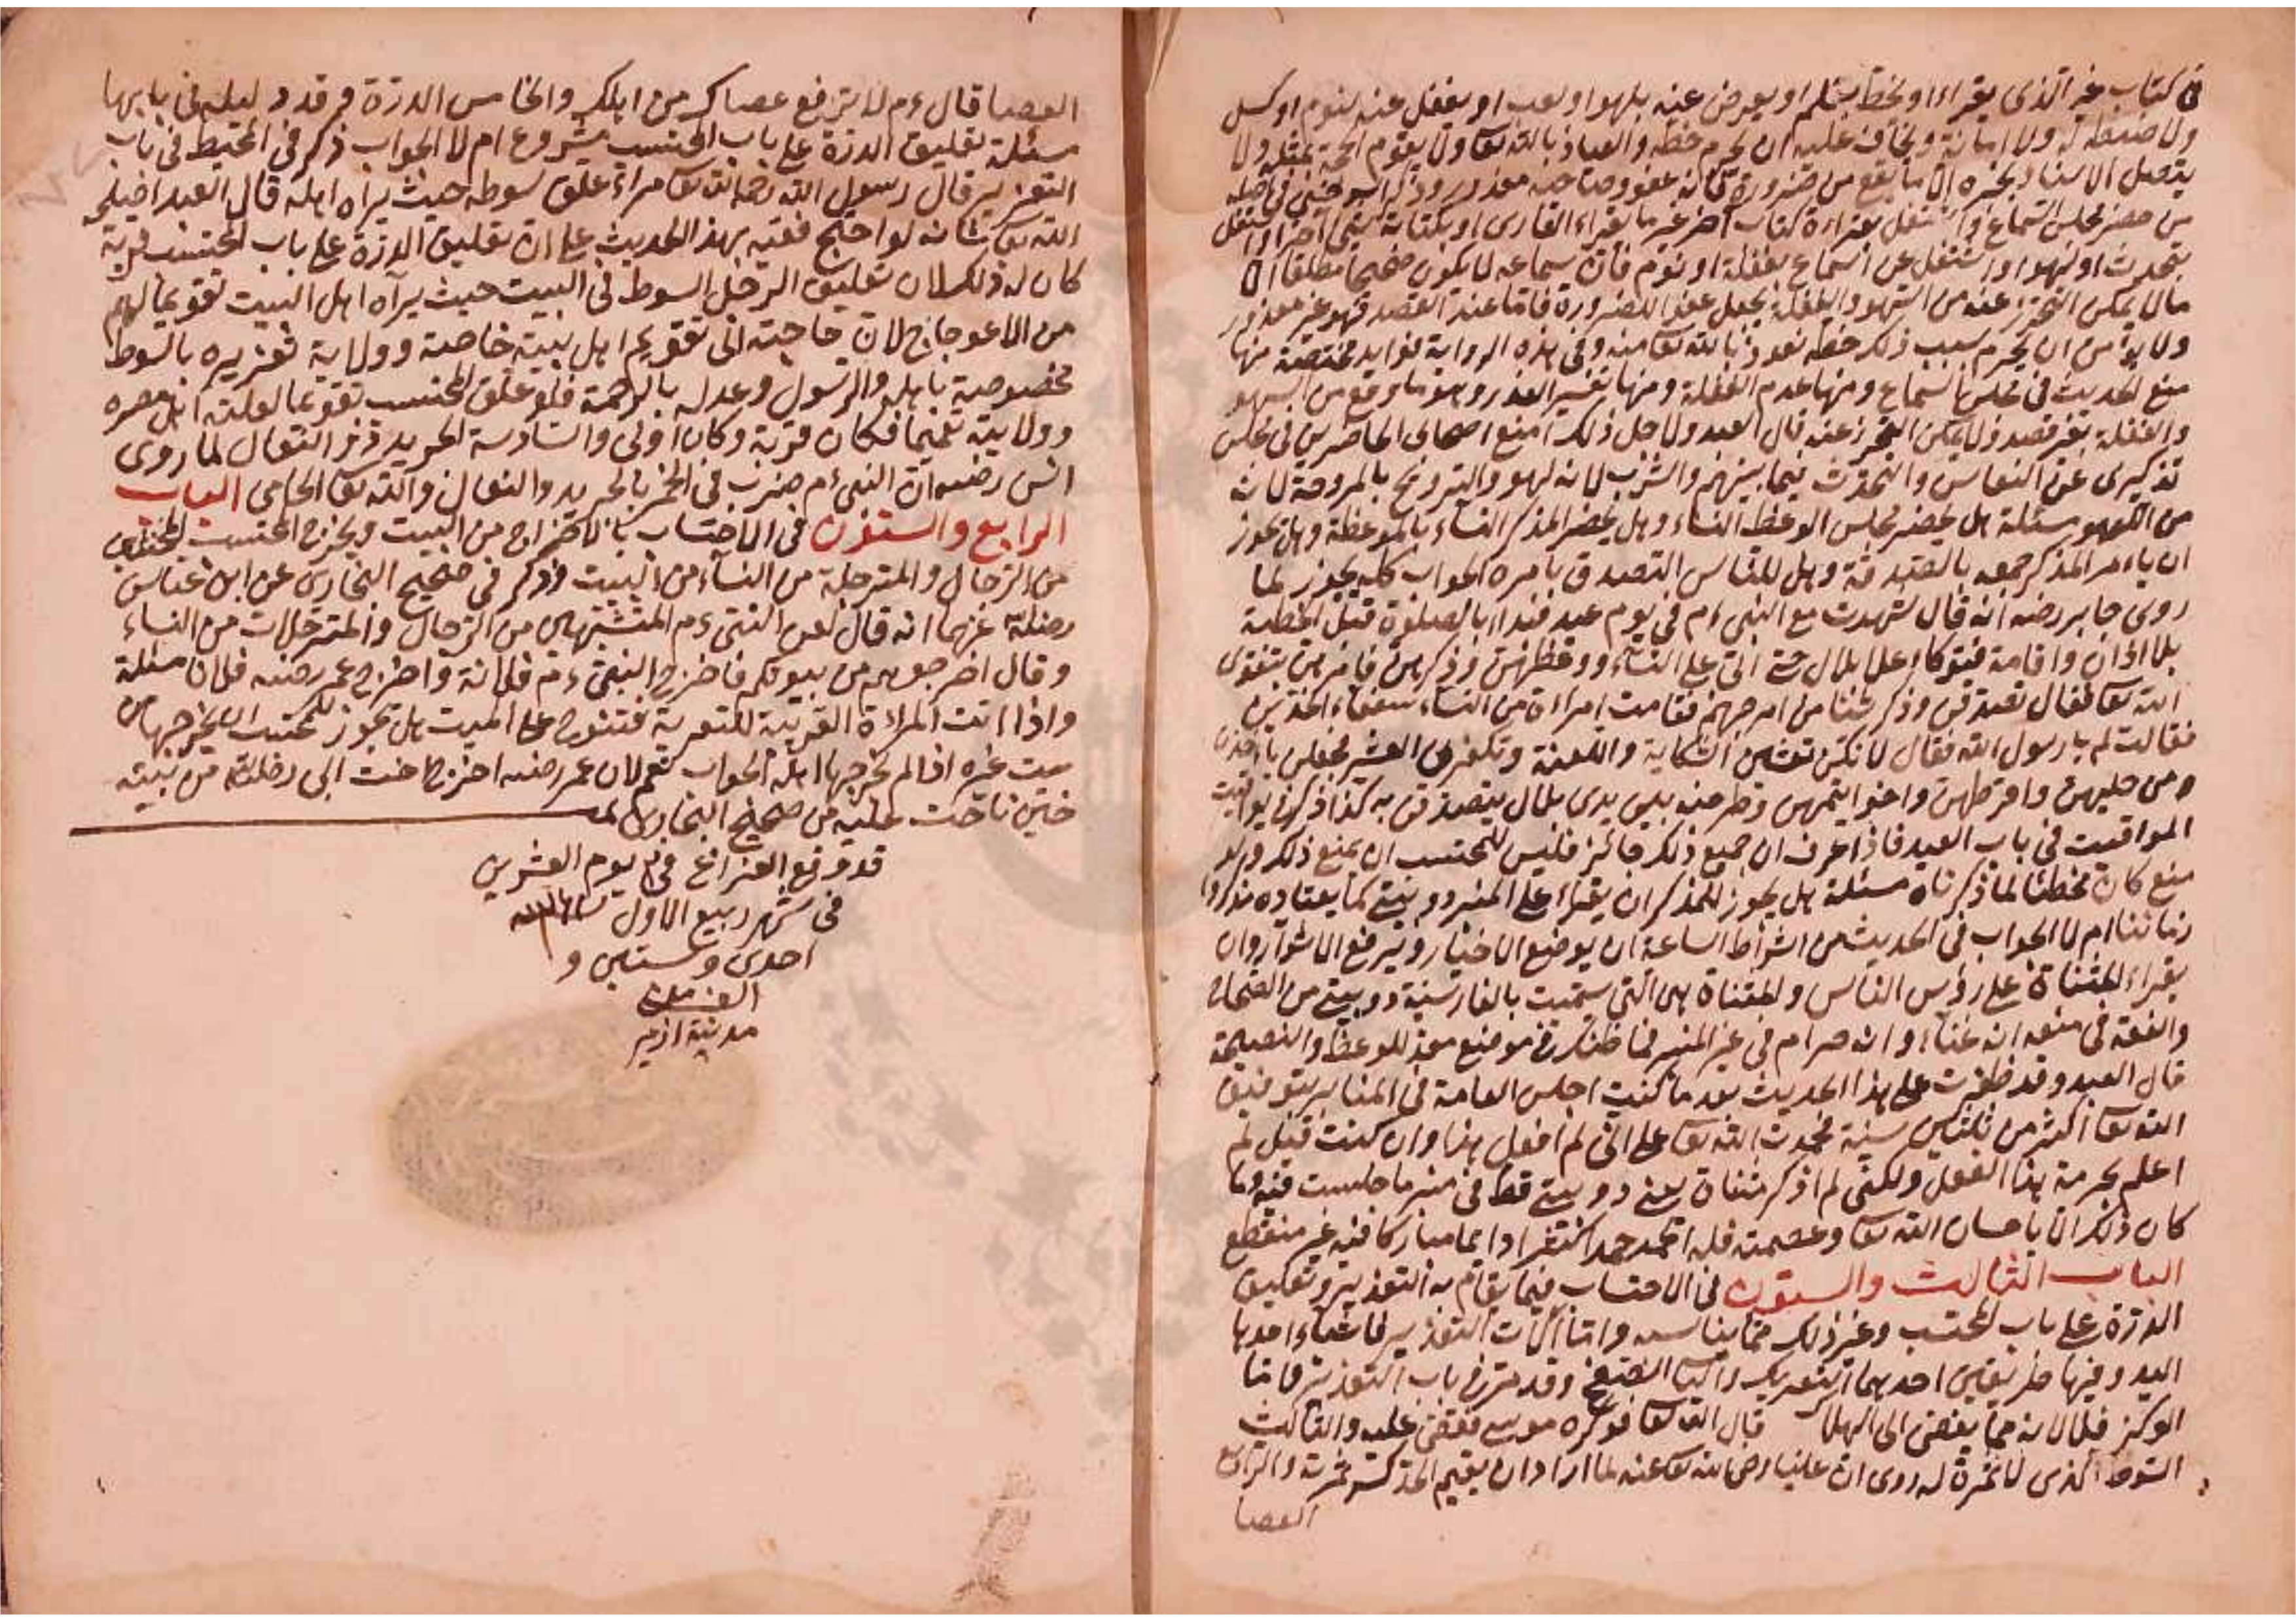 في كتاب غير الذي يقراء او بخط بقلم او يعرض عنه بلهو او لعب او يغفل عنه بنوم او كسل
ولا ضبط له ولا امانة ويخاف عليه ان يحرم حظه والعياذ بالله تعا ولا يقوم الحجة بمثله ولا
يتصل الاسناد بخبره الا ما يقع من ضرورة فانه عفو وصاحبه معذور وذكر في اصله
من حضر مجلس السماع واشتغل بقراءة كتاب آخر غير ما يقراء القارى او بكتابة شيء آخر او اشتغل
بتحدث او لهو او اشتغل عن السماع بغفلة او نوم فان سماعه لا يكون صحيحا مطلقا الا
ما لا يمكن التحرز عنه من السهو والغفلة يجعل عفوا للضرورة فاما عند القصد فهو غير معذور
ولا يؤمن ان يحرم بسبب ذلك حظه نعوذ بالله تعا منه وفي هذه الرواية فوايد مختصة منها
منع الحديث في مجلس السماع ومنها عدم الغفلة ومنها تفسير العذر وهو ما وقع من السهو
والغفلة بغير قصد ولا يمكن التحرز عنه قال العبد ولاجل ذلك امنع اصحابى الحاضرين في مجلس
تذكيرى عن النعاس والتحدث فيما بينهم والشرب لانه لهو والترويح بالمروحة لانه
من اللهو مسئلة هل يحضر مجلس الوعظ النساء وهل يخص المذكر النساء بالموعظة وهل يجوز
ان ياءمر المذكر جمعه بالصدقة وهل للناس التصدق بامره الجواب كله يجوز لما
روى جابر رضه انه قال شهدت مع النبي ءم في يوم عيد فبداء بالصلوة قبل الخطبة
بلا اذان واقامة فتوكاء على بلال حتى اتى على النساء ووعظهن وذكرهن فامرهن بتقوى
الله تعا فقال تصدقن وذكر شئا من امر جهنم فقامت امراءة من النساء سفعاء الخدين
فقالت لم يا رسول الله فقال لانكن تفشين الشكاية واللعنة وتكفرن العشير فجعلن ياءخذن
من حليهن واقرطهن وخواتيمهن وطرحنه بين يدى بلال يتصدقن به كذا ذكر في يواقيت
المواقيت في باب العيد فاذا عرف ان جميع ذلك جائز فليس للمحتسب ان يمنع ذلك ولو
منع كان مخطئا لما ذكرناه مسئلة هل يجوز للمذكر ان يقراء على المنبر دو بيتي كما يعتاده مذكروا
زماننا ام لا الجواب في الحديث من اشراط الساعة ان يوضع الاخيار ويرفع الاشرار وان
يقراء المثناة على رؤس الناس والمثناة هى التي سميت بالفارسية دو بيتي من الصحاح
والفقه في منعه انه غناء وانه حرام في غير المنبر فما ظنك في موضع معد للوعظ والنصيحة
قال العبد وقد ظفرت على هذا الحديث بعد ما كنت اجلس العامة في المنابر بتوفيق
الله تعا اكثر من ثلثين سنة فحمدت الله تعا على انى لم افعل هذا وان كنت قبل لم
اعلم بحرمة هذا الفعل ولكنى لم اذكر مثناة يعنى دو بيتي قط في منبر ما جلست فيه وما
كان ذلك الا باحسان الله تعا وعصمته فله الحمد حمدا كثيرا دايما مباركا فيه غير منقطع
الباب الثالث والستون في الاحتساب فيما يقام به التعذير وتعليق
الدرة على باب المحتسب وغير ذلك مما يناسبه واما آلات التعذير فاشياء احدها
اليد وفيها طريقين احدهما التعريك والثا الصفع وقد مر في باب التعذير فاما
الوكز فلا لانه مما يفضى الى الهلاك قال الله تعا فوكزه موسى فقضى عليه والثالث
السوط الذى لا ثمرة له روى ان عليا رضى الله تعا عنه لما اراد ان يقيم الحد كسر ثمرته والرابع
العصا
العصا قال ءم لا ترفع عصاك من اهلك والخامس الدرة وقد ذكر في بابها
مسئلة تعليق الدرة على باب المحتسب مشروع ام لا الجواب ذكر في المحيط في باب
التعزير قال رسول الله رحم الله تعا امراء علق سوطه حيث يراه اهله قال العبد اصلحه
الله تعا شانه لو احتج فقيه بهذا الحديث على ان تعليق الدرة على باب المحتسب قربة
كان له ذلك لان تعليق الرجل السوط في البيت حيث يراه اهل البيت تقويما لهم
من الاعوجاج لان حاجته الى تقويم اهل بيته خاصة وولاية تعزيره بالسوط
مخصوصة باهله والرسول وعد له بالرحمة فلو علق المحتسب تقويما لعامة اهل مصره
وولايته تعميما فكان قربة وكان اولى والسادسة الجريد ذر النعال لما روى
انس رضه ان النبى ءم ضرب في الخمر بالجريد والنعال والله تعا الحامى الباب
الرابع والستون في الاحتساب بالاخراج من البيت ويخرج المحتسب المخنثين
من الرجال والمترجلة من النساء من البيت وذكر في صحيح البخارى عن ابن عباس
رضى الله عنهما انه قال لعن النبى ءم المتشبهين من الرجال والمترجلات من النساء
وقال اخرجوهم من بيوتكم فاخرج النبى ءم فلانة واخرج عمر رضه فلان مسئلة
واذا اتت المراءة القريبة للتعزية فتنوح على الميت هل يجوز للمحتسب ان يخرجها من
بيت غيره اذا لم يخرجها اهله الجواب نعم لان عمر رضه اخرج اخت ابى بكر من بيته
حين ناحت عليه من صحيح البخارى
قد وقع الفراغ في يوم العشرين
في شهر ربيع الاول
احدى وستين و
الف
مدينة ازمير